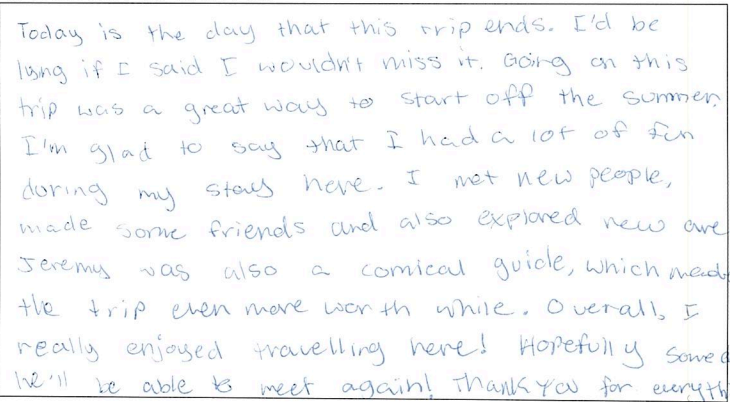 Today is the day that this trip ends. I'd be
lying if I said I wouldn't miss it. Going on this
trip was a great way to start off the summer.
I'm glad to say that I had a lot of fun
during my stay here. I met new people,
made some friends and also explored new are
Jeremy was also a comical guide, which made
the trip even more worth while. Overall, I
really enjoyed travelling here! Hopefully some
we'll be able to meet again! Thank you for everyth